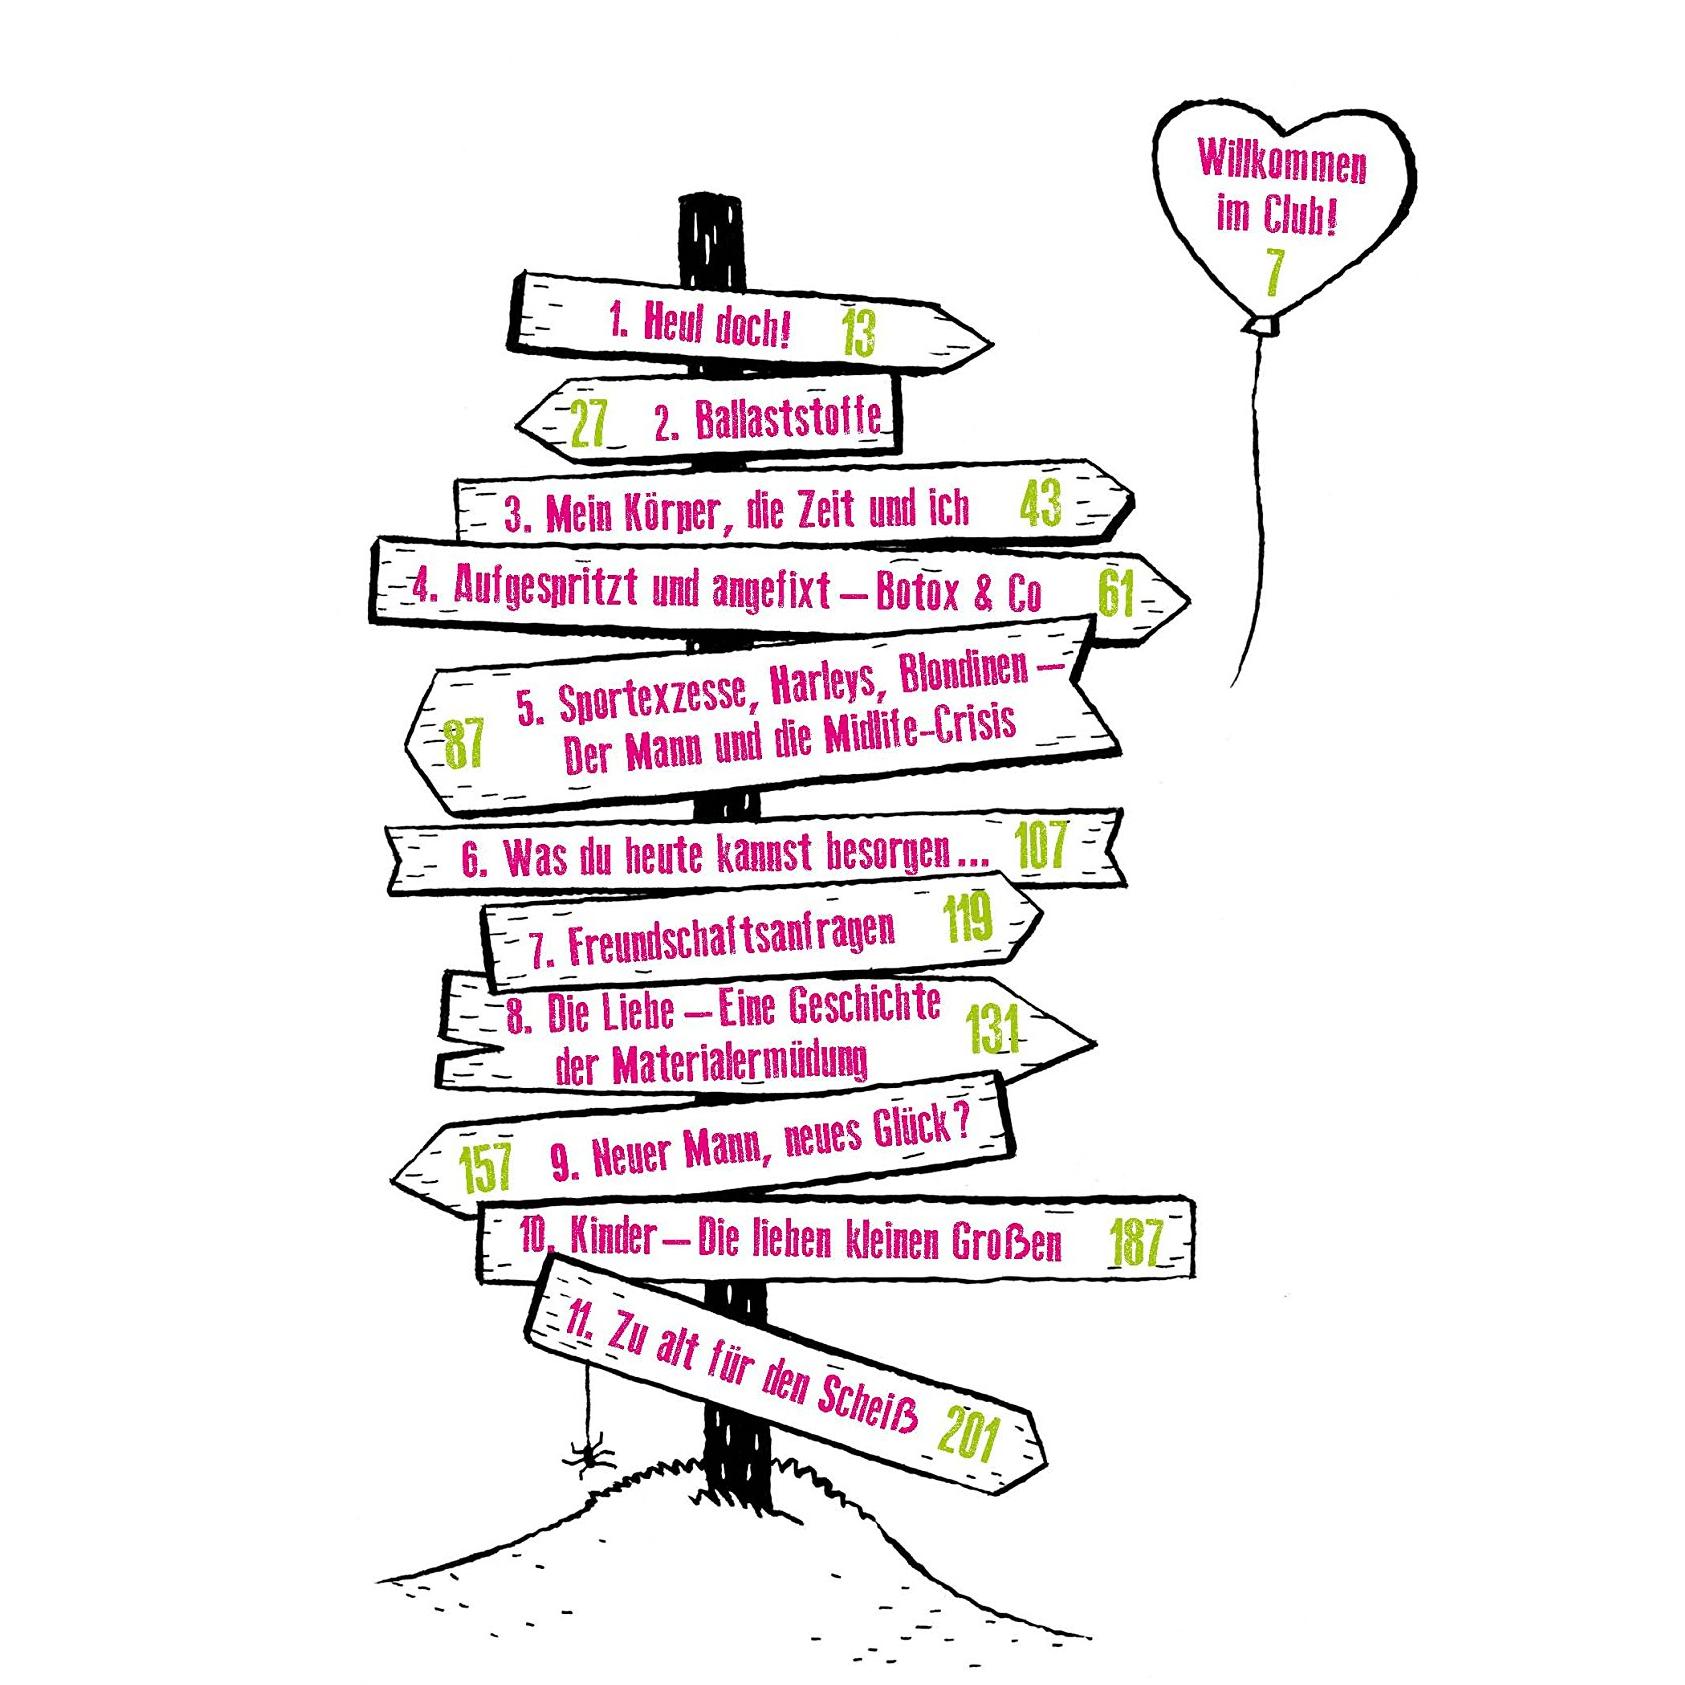 Willkommen
im Club!
7
1. Heul doch! 13
27 2. Ballaststoffe
3. Mein Körper, die Zeit und ich 43
4. Aufgespritzt und angefixt – Botox & Co 61
5. Sportexzesse, Harleys, Blondinen –
87 Der Mann und die Midlife-Crisis
6. Was du heute kannst besorgen... 107
7. Freundschaftsanfragen 119
8. Die Liebe – Eine Geschichte
der Materialermüdung 131
157 9. Neuer Mann, neues Glück?
10. Kinder – Die lieben kleinen Großen 187
11. Zu alt für den Scheiß 201